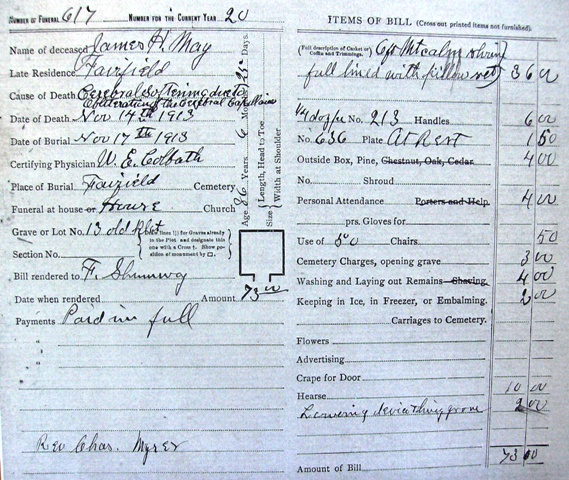 NUMBER OF FUNERAL 617 NUMBER FOR THE CURRENT YEAR 20
Name of deceased James H. May
Late Residence Fairfield
Cause of Death Cerebral Softening due to
Obliterating of the Cerebral Capillaries
Date of Death Nov 14th 1913
Date of Burial Nov 17th 1913
Certifying Physician W. E. Colbath
Place of Burial Fairfield Cemetery
Funeral at house or House Church
Grave or Lot No. 13 old Plot
Section No.
Draw lines for Graves already in the Plot and designate this one with a Cross †. Show position of monument by □.
Bill rendered to F. Shumway
Date when rendered Amount 73 00
Payments Paid in full
"
"
Rev Chas. Myser
Age 86 Years 6 Mo Days
Size Length, Head to Toe
Width at Shoulder
ITEMS OF BILL (Cross out printed items not furnished).
(Full description of Casket or Coffin and Trimmings.)
full lined with pillow set 36 00
1/4 doz pr No. 213 Handles 6 00
No. 636 Plate At Rest 1 50
Outside Box, Pine, Chestnut, Oak, Cedar 4 00
No. Shroud
Personal Attendance Porters and Help 4 00
prs. Gloves for
Use of 50 Chairs 50
Cemetery Charges, opening grave 3 00
Washing and Laying out Remains Shaving. 4 00
Keeping in Ice, in Freezer, or Embalming. 2 00
Carriages to Cemetery.
Flowers
Advertising
Crape for Door
Hearse 10 00
Lowering device 2 00
Amount of Bill 73 00